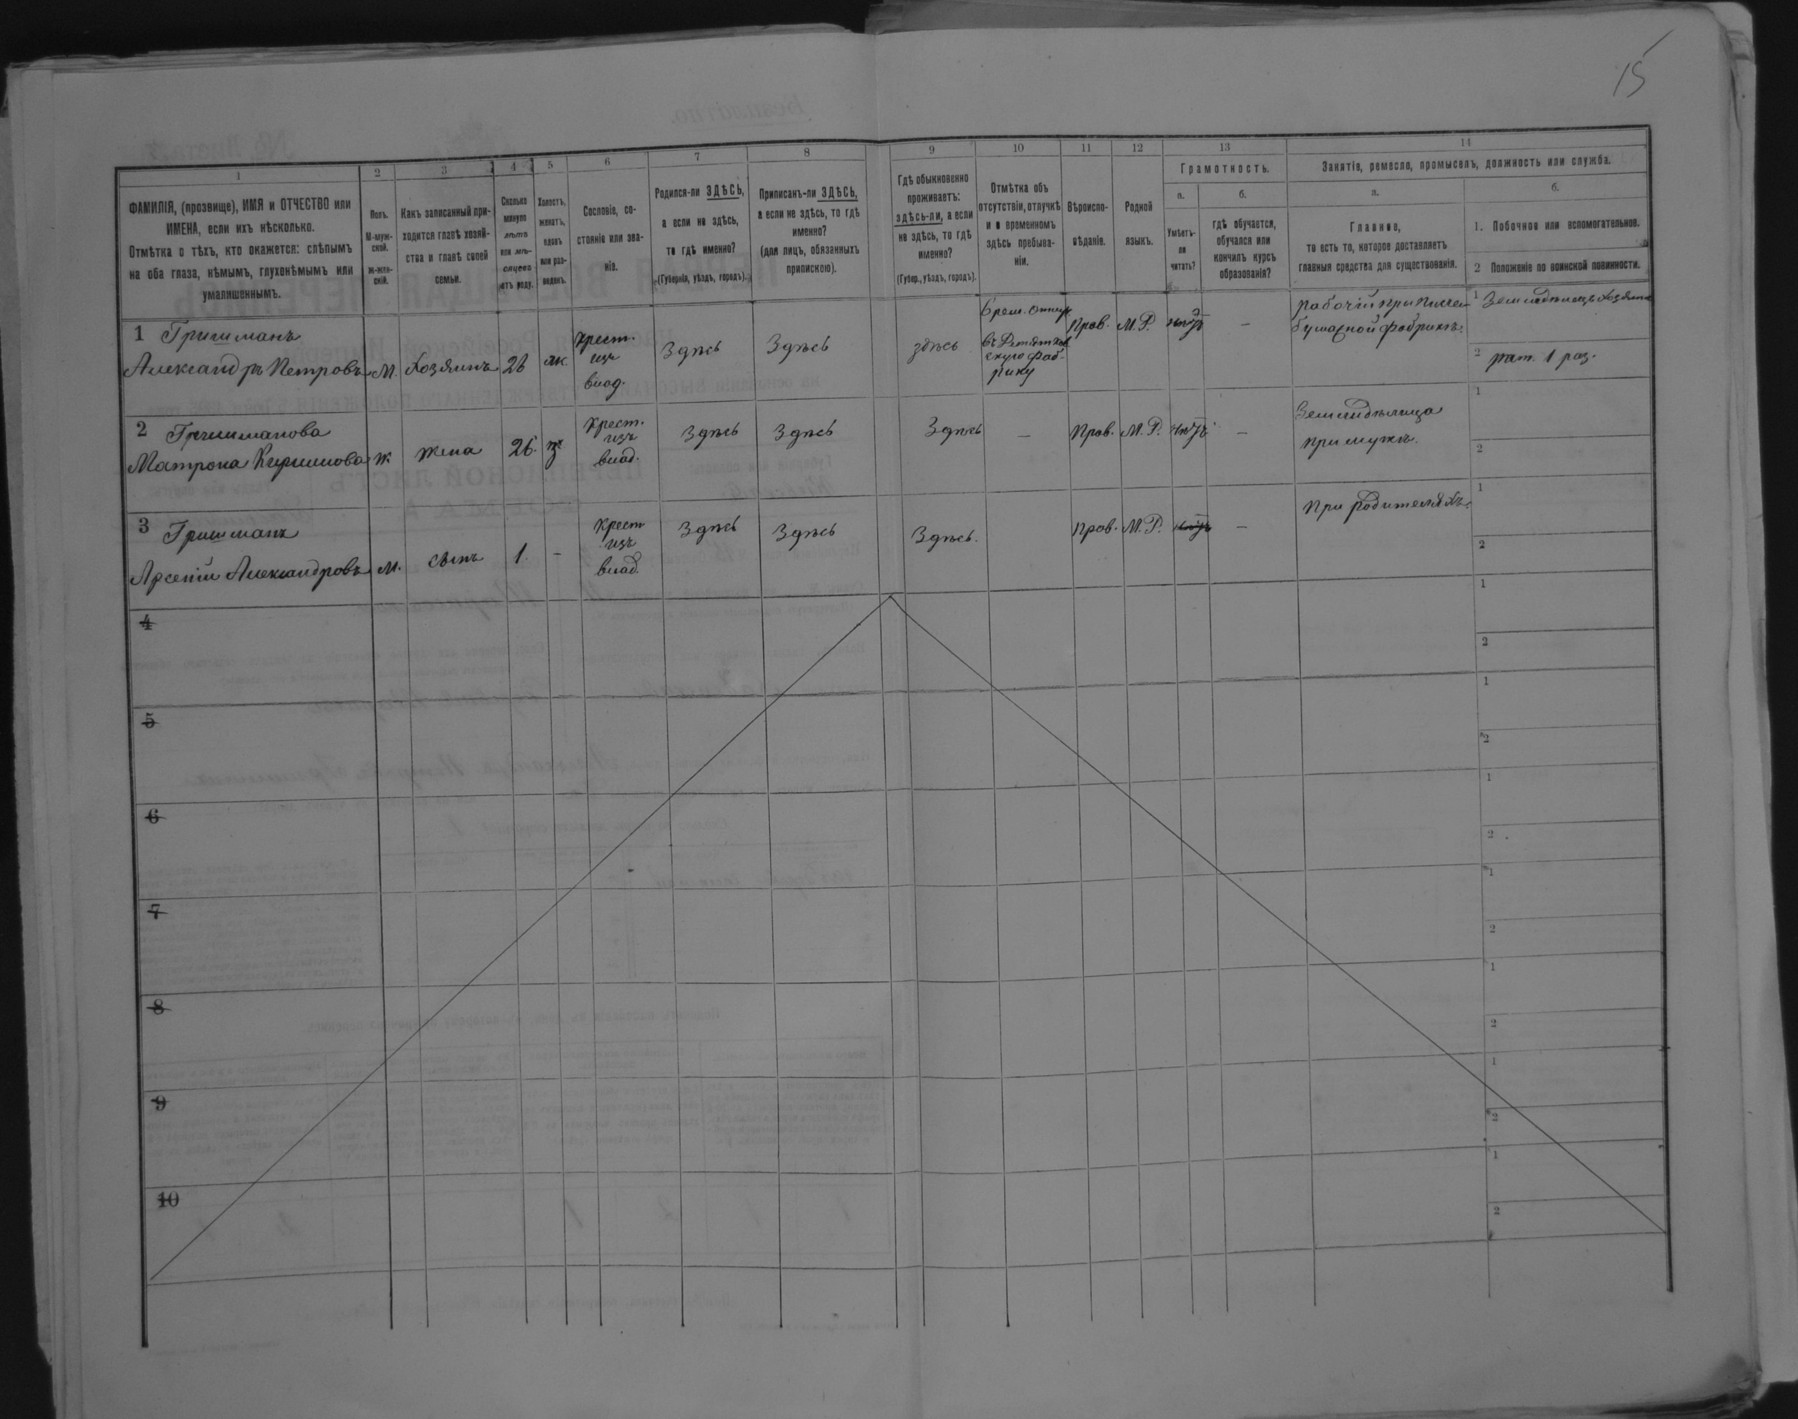 15
1
2
3
4
5
6
7
8
9
10
11
12
13
14
ФАМИЛІЯ, (прозвище), ИМЯ и ОТЧЕСТВО или
ИМЕНА, если ихъ нѣсколько.
Отмѣтка о тѣхъ, кто окажется: слѣпымъ
на оба глаза, нѣмымъ, глухонѣмымъ или
умалишеннымъ.
Полъ.
М-муж-
ской.
Ж-жен-
скій.
Какъ записанный при-
ходится главѣ хозяй-
ства и главѣ своей
семьи.
Сколько
минуло
лѣтъ
или мѣ-
сяцевъ
отъ роду.
Холостъ,
женатъ,
вдовъ
или раз-
веденъ.
Сословіе, со-
стояніе или зва-
ніе.
Родился-ли ЗДѢСЬ,
а если не здѣсь,
то гдѣ именно?
(Губернія, уѣздъ, городъ).
Приписанъ-ли ЗДѢСЬ,
а если не здѣсь, то гдѣ
именно?
(для лицъ, обязанныхъ
припискою).
Гдѣ обыкновенно
проживаетъ:
здѣсь-ли, а если
не здѣсь, то гдѣ
именно?
(Губер., уѣздъ, городъ).
Отмѣтка объ
отсутствіи, отлучкѣ
и о временномъ
здѣсь пребыва-
ніи.
Вѣроиспо-
вѣданіе.
Родной
языкъ.
Грамотность.
а.
Умѣетъ-
ли
читать?
б.
гдѣ обучается,
обучался или
кончилъ курсъ
образованія?
Занятіе, ремесло, промыселъ, должность или служба.
а.
Главное,
то есть то, которое доставляетъ
главныя средства для существованія.
б.
1. Побочное или вспомогательное.
2 Положеніе по воинской повинности.
1 Гришманъ
Александръ Петровъ
м. Хозяинъ 26 ж.
Крест.
изъ
влад.
Здѣсь Здѣсь здѣсь
фаб-
рику
Прав. М.Р. нѣтъ —
рабочій при
бумажной фабрикѣ
1 Земледѣлецъ хозяинъ
2 рат. 1 раз.
2 Гришманова
Матрона
ж жена 26. з.
Крест.
изъ
влад.
Здѣсь Здѣсь Здѣсь — Прав. М.Р. нѣтъ —
Земледѣлица
при мужѣ.
1
2
3 Гришманъ
Арсеній Александровъ
м. сынъ 1. -
Крест
изъ
влад.
Здѣсь Здѣсь Здѣсь. Прав. М.Р. нѣтъ —
При родителяхъ.
1
2
4
1
2
5
1
2
6
1
2
7
1
2
8
1
2
9
1
2
10
1
2